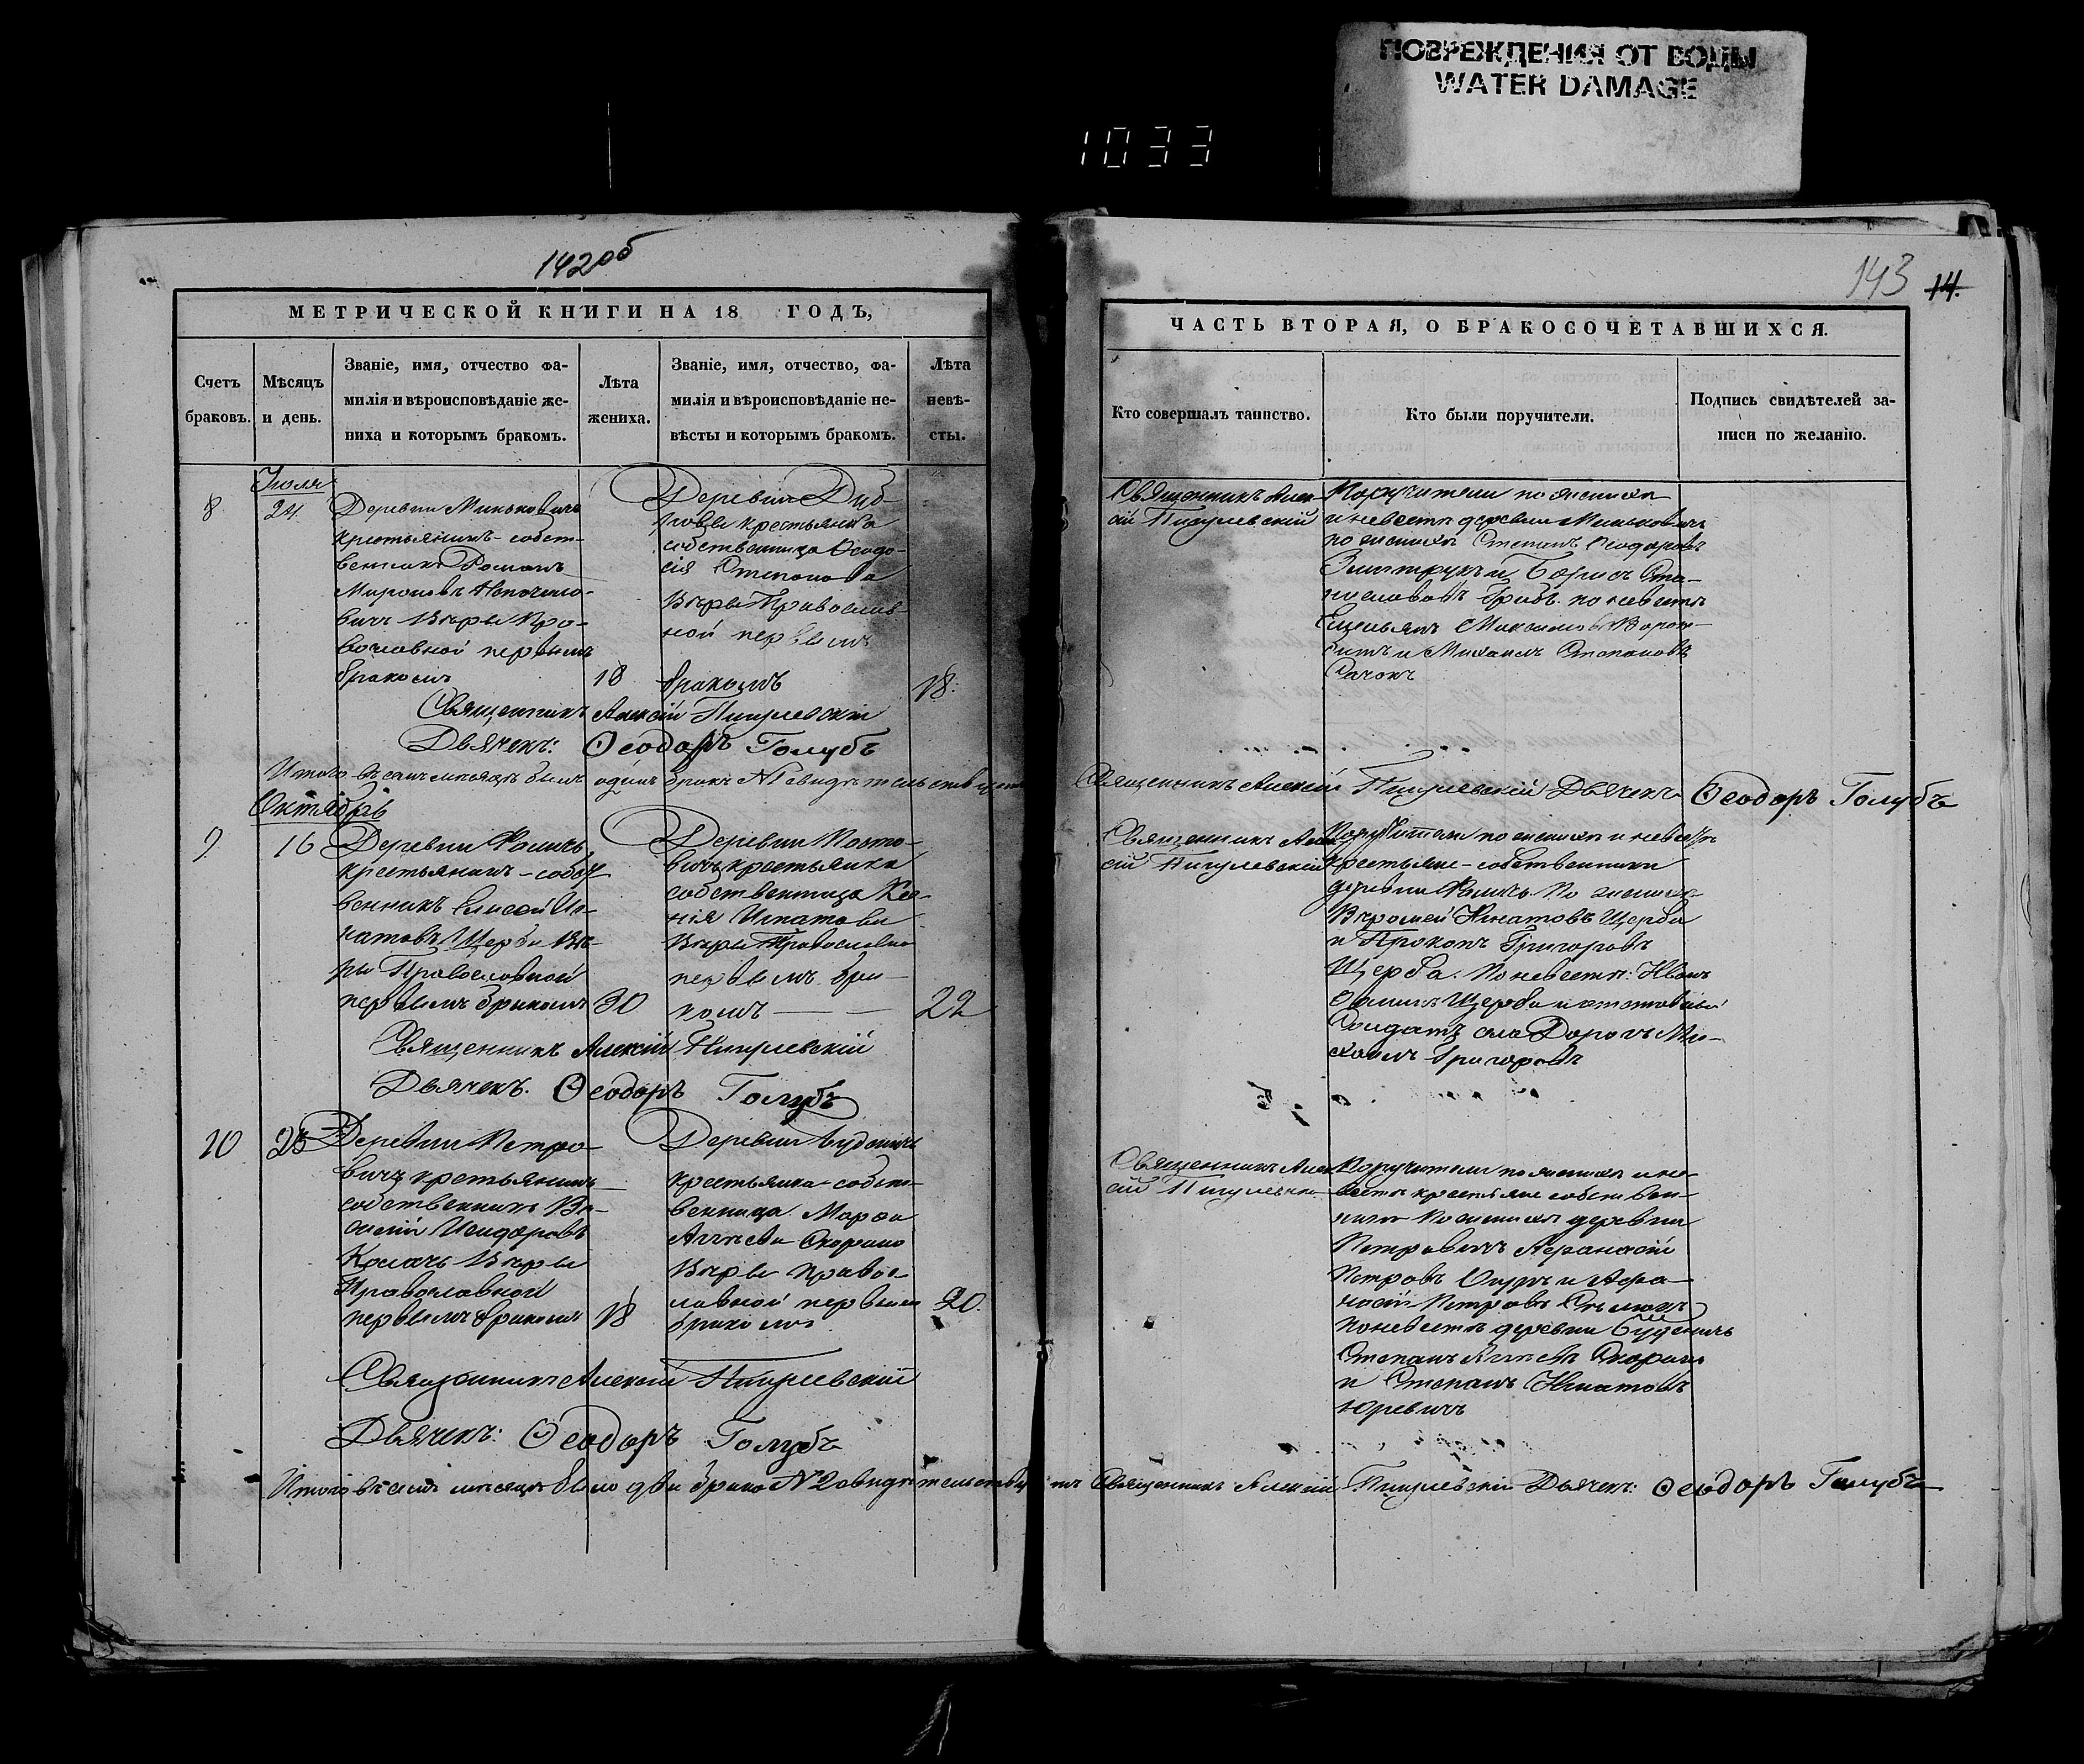 ПОВРЕЖДЕНИЯ ОТ ВОДЫ
WATER DAMAGE
1033
142об
МЕТРИЧЕСКОЙ КНИГИ НА 18 ГОДЪ,
Счетъ браковъ.
Мѣсяцъ и день.
Званіе, имя, отчество фа-
милія и вѣроисповѣданіе же-
ниха и которымъ бракомъ.
Лѣта
жениха.
Званіе, имя, отчество, фа-
милія и вѣроисповѣданіе не-
вѣсты и которымъ бракомъ.
Лѣта
невѣ-
сты.
Іюля
8
24.
Деревни Миньковичъ
крестьянинъ-собст-
венникъ Романъ
Мироновъ
вичъ Вѣры Пра-
вославной первымъ
бракомъ
18
Деревни Дуб-
крестьянка
собственница Ѳеодо-
сія Степанова
Вѣры Православ-
ной первымъ
бракомъ
18.
Священникъ Алексій Пигулевскій
Дьячекъ: Ѳеодоръ Голубъ
Итого въ семъ мѣсяцѣ былъ одинъ бракъ №1 свидѣтельствуютъ
Октябрь
9.
16
Деревни
крестьянинъ-собст-
венникъ Елисей Иг-
натовъ Щерба Вѣ-
ры Православной
первымъ бракомъ
30
Деревни
вичъ крестьянка
собственница Ксе-
нія Игнатова
Вѣры Православной
первымъ бра-
комъ
22
Священникъ Алексій Пигулевскій
Дьячекъ. Ѳеодоръ Голубъ
10
Деревни Петро-
вичъ крестьянинъ
собственникъ Ва-
силій Исидоровъ
Вѣры
Православной
первымъ бракомъ
18
Деревни
крестьянка-собст-
венница Марѳа
Вѣры Правос-
лавной первымъ
бракомъ
20.
Священникъ Алексій Пигулевскій
Дьячекъ: Ѳеодоръ Голубъ
Итого въ семъ мѣсяцѣ было два брака №2 свидѣтельствуютъ
143 14.
ЧАСТЬ ВТОРАЯ, О БРАКОСОЧЕТАВШИХСЯ.
Кто совершалъ таинство.
Кто были поручители.
Подпись свидѣтелей за-
писи по желанію.
Священникъ Алек-
сій Пигулевскій
Поручители по женихѣ
и невѣстѣ деревни Миньковичъ
по женихѣ Степанъ Ѳеодоровъ
и Борисъ
по невѣстѣ
Емельянъ Максимовъ
и Михаилъ Степановъ
Священникъ Алексій Пигулевскій Дьячекъ Ѳеодоръ Голубъ
Священникъ Алек-
сій Пигулевскій
Поручители по женихѣ и невѣстѣ
крестьяне-собственники
деревни По женихѣ
Игнатовъ Щерба
и Прокопъ Григоровъ
Щерба. По невѣстѣ: Иванъ
Щерба и отставной
Солдатъ села Дорогъ Ми-
хаилъ Григоровъ
Священникъ Алек-
сій Пигулевскій
Поручители по женихѣ и не-
вѣстѣ крестьяне собствен-
ники По женихѣ деревни
Петровичъ Аѳанасій
Петровъ и Аѳа-
насій Петровъ
По невѣстѣ деревни
Степанъ
и Степанъ Игнатовъ
Юревичъ
Священникъ Алексій Пигулевскій Дьячекъ: Ѳеодоръ Голубъ